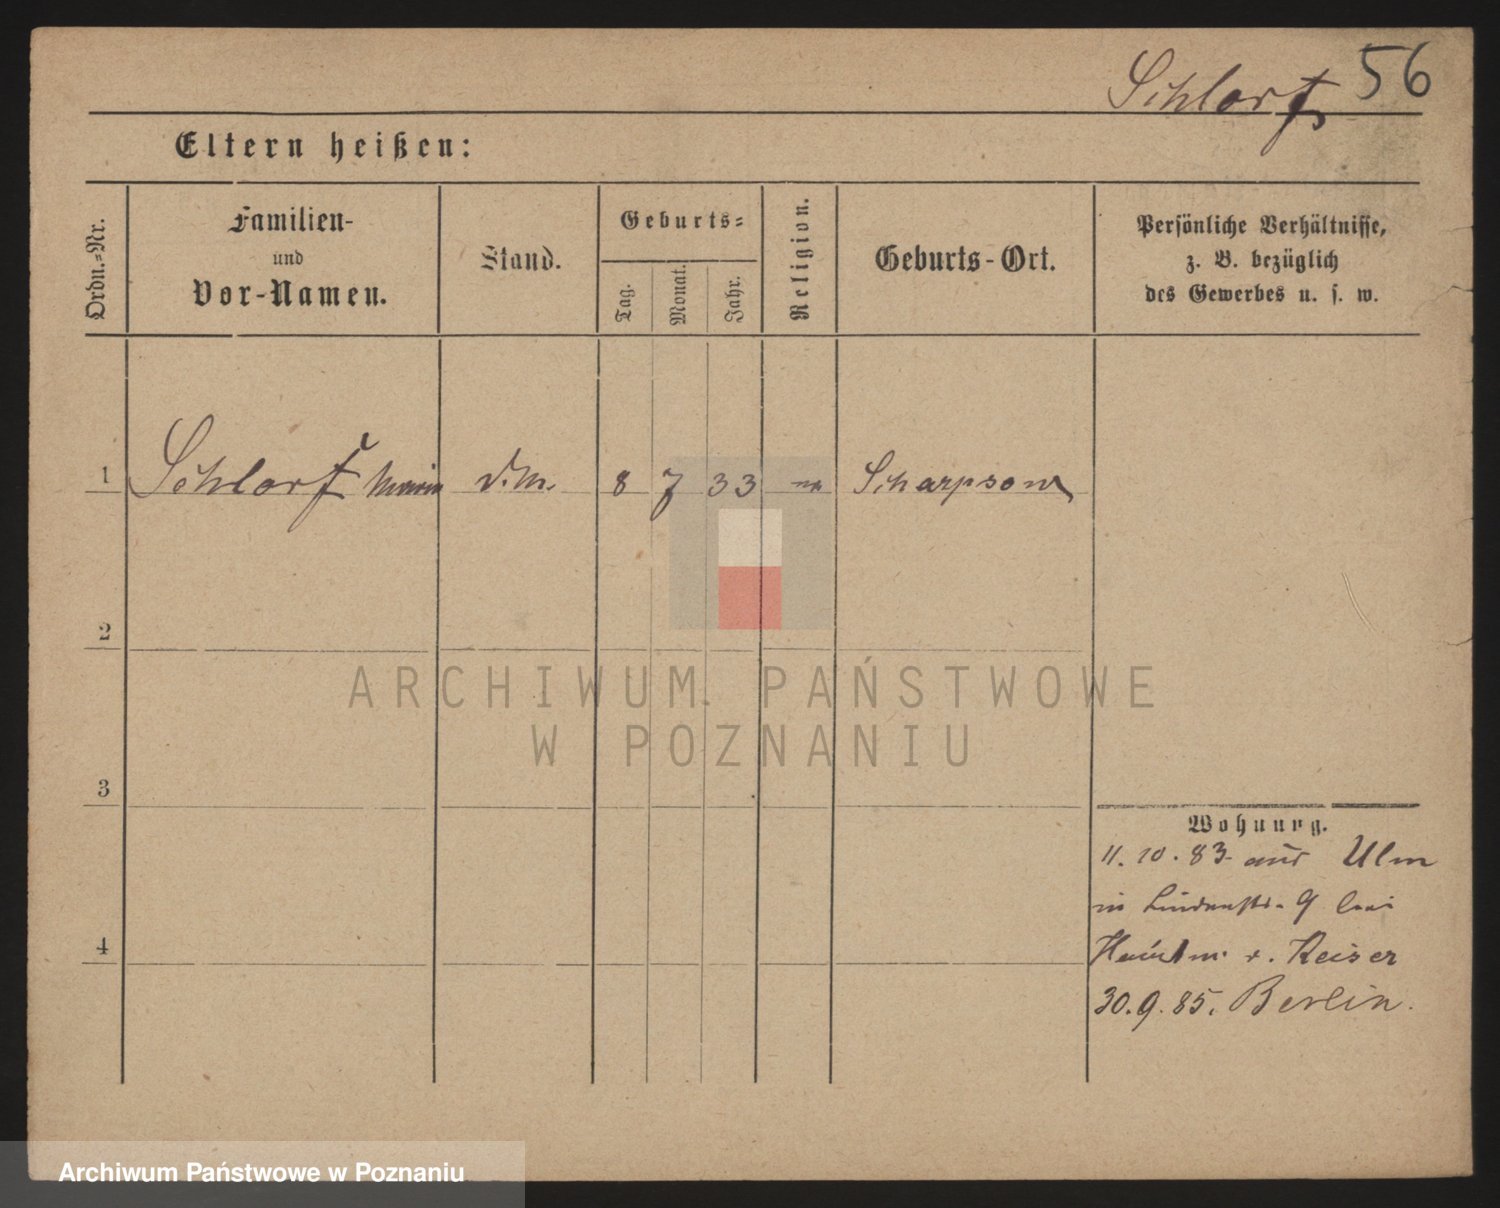 Schlorf 56
Eltern heißen:
Ordn.-Nr.
Familien-
und
Vor-Namen.
Stand.
Geburts-
Tag.
Monat.
Jahr.
Religion.
Geburts-Ort.
Persönliche Verhältnisse,
z. B. bezüglich
des Gewerbes u. s. w.
1 Schlorf Marie d.M. 8 7 33 Scharpsow
2
3
4
Wohnung.
11. 10. 83 aus Ulm
in Lindenstr. 9 bei
Hauptm. v. Keiser
30. 9. 85. Berlin.
ARCHIWUM PAŃSTWOWE
W POZNANIU
Archiwum Państwowe w Poznaniu